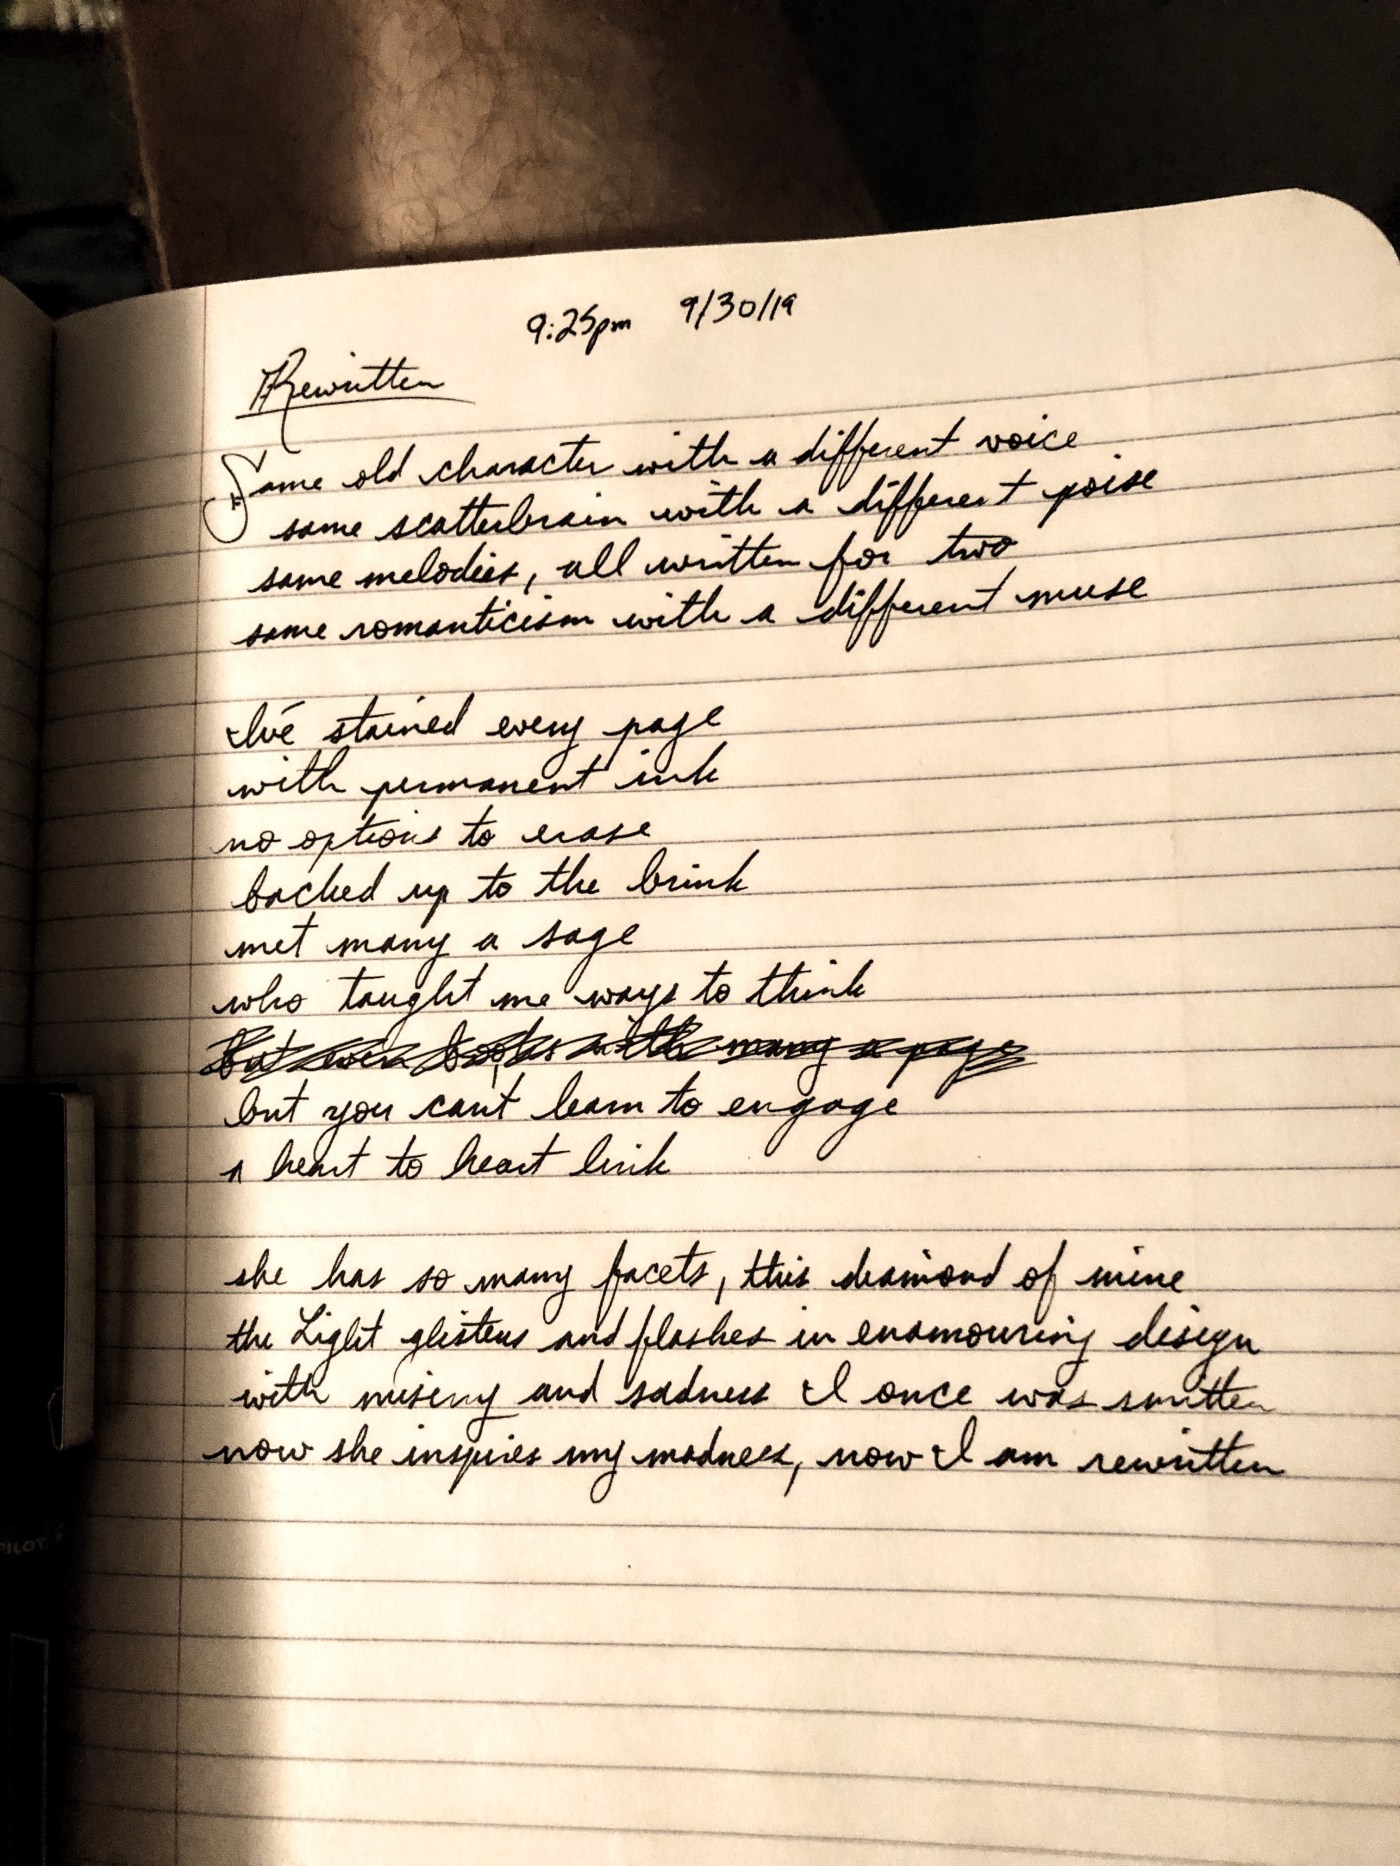 9:25pm 9/30/19
Rewritten
Same old character with a different voice
same scatterbrain with a different poise
same melodies, all written for two
same romanticism with a different muse
I've stained every page
with permanent ink
no options to erase
backed up to the brink
met many a sage
who taught me ways to think
but even books with many a page
but you can't learn to engage
a heart to heart link
she has so many facets, this diamond of mine
the Light glistens and flashes in enamouring design
with misery and sadness I once was smitten
now she inspires my madness, now I am rewritten
PILOT